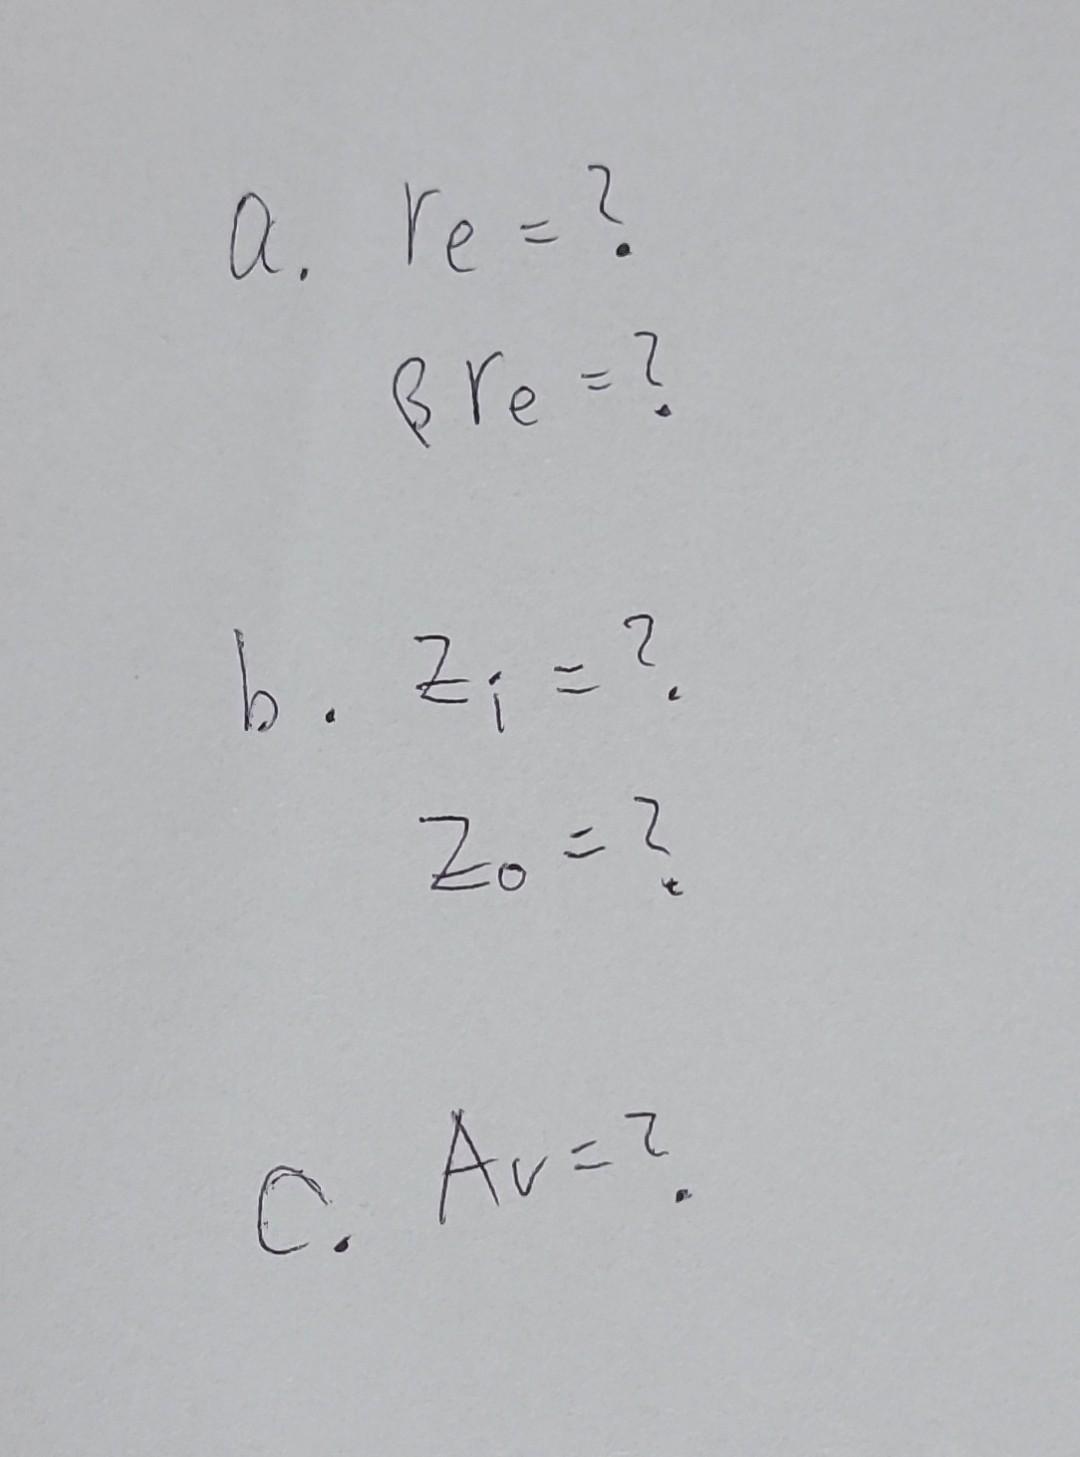 a. re = ?
βre = ?
b. Zi = ?
Zo = ?
C. Av = ?